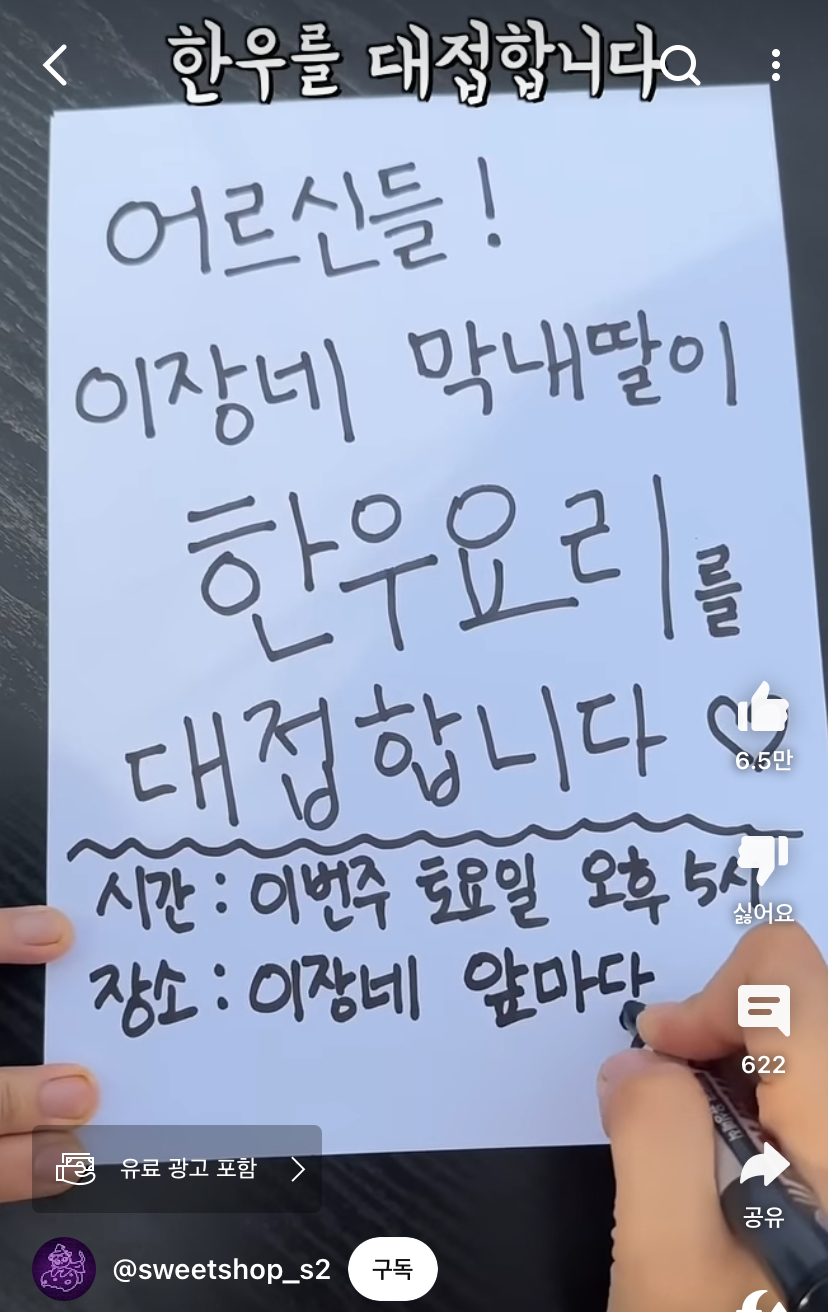 한우를 대접합니다
어르신들!
이장네 막내딸이
한우요리를
대접합니다 ♡
시간 : 이번주 토요일 오후 5시
장소 : 이장네 앞마당
6.5만
싫어요
622
유료 광고 포함
공유
@sweetshop_s2 구독